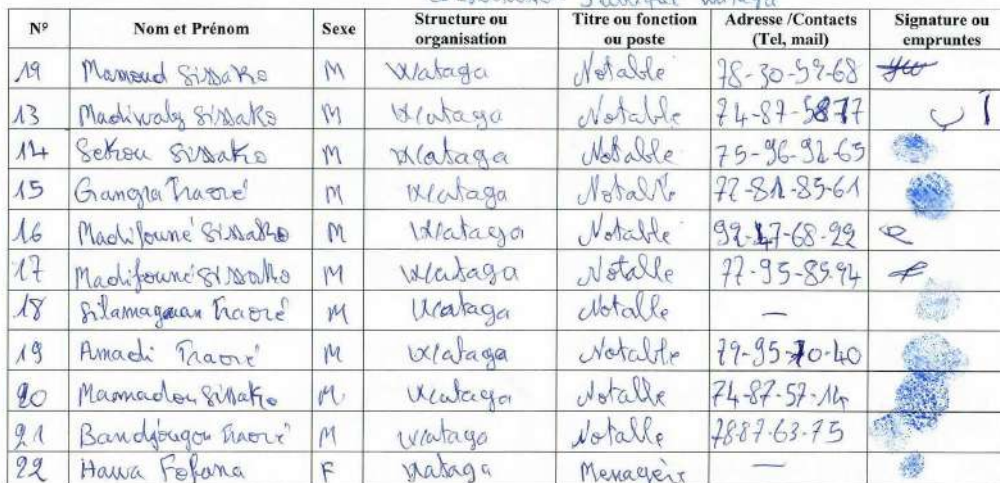 Nº Nom et Prénom Sexe Structure ou organisation Titre ou fonction ou poste Adresse /Contacts (Tel, mail) Signature ou empruntes
19 Mamoud Sissako M Wataga Notable 78-30-59-68
13 Madiwaly Sissako M Wataga Notable 74-87-5877
14 Sekou Sissako M Wataga Notable 75-96-92-65
15 Gangra Traoré M Wataga Notable 72-81-85-61
16 Madifouné Sissako M Wataga Notable 92-47-68-22
17 Madifouné Sissako M Wataga Notable 77-95-85-94
18 Silamaguan Traoré M Wataga Notable —
19 Amadi Traoré M Wataga Notable 79-95-70-40
20 Mamadou Sissako M Wataga Notable 74-87-57-14
21 Bandjougou Traoré M Wataga Notable 7887-63-75
22 Hawa Fofana F Wataga Menagère —